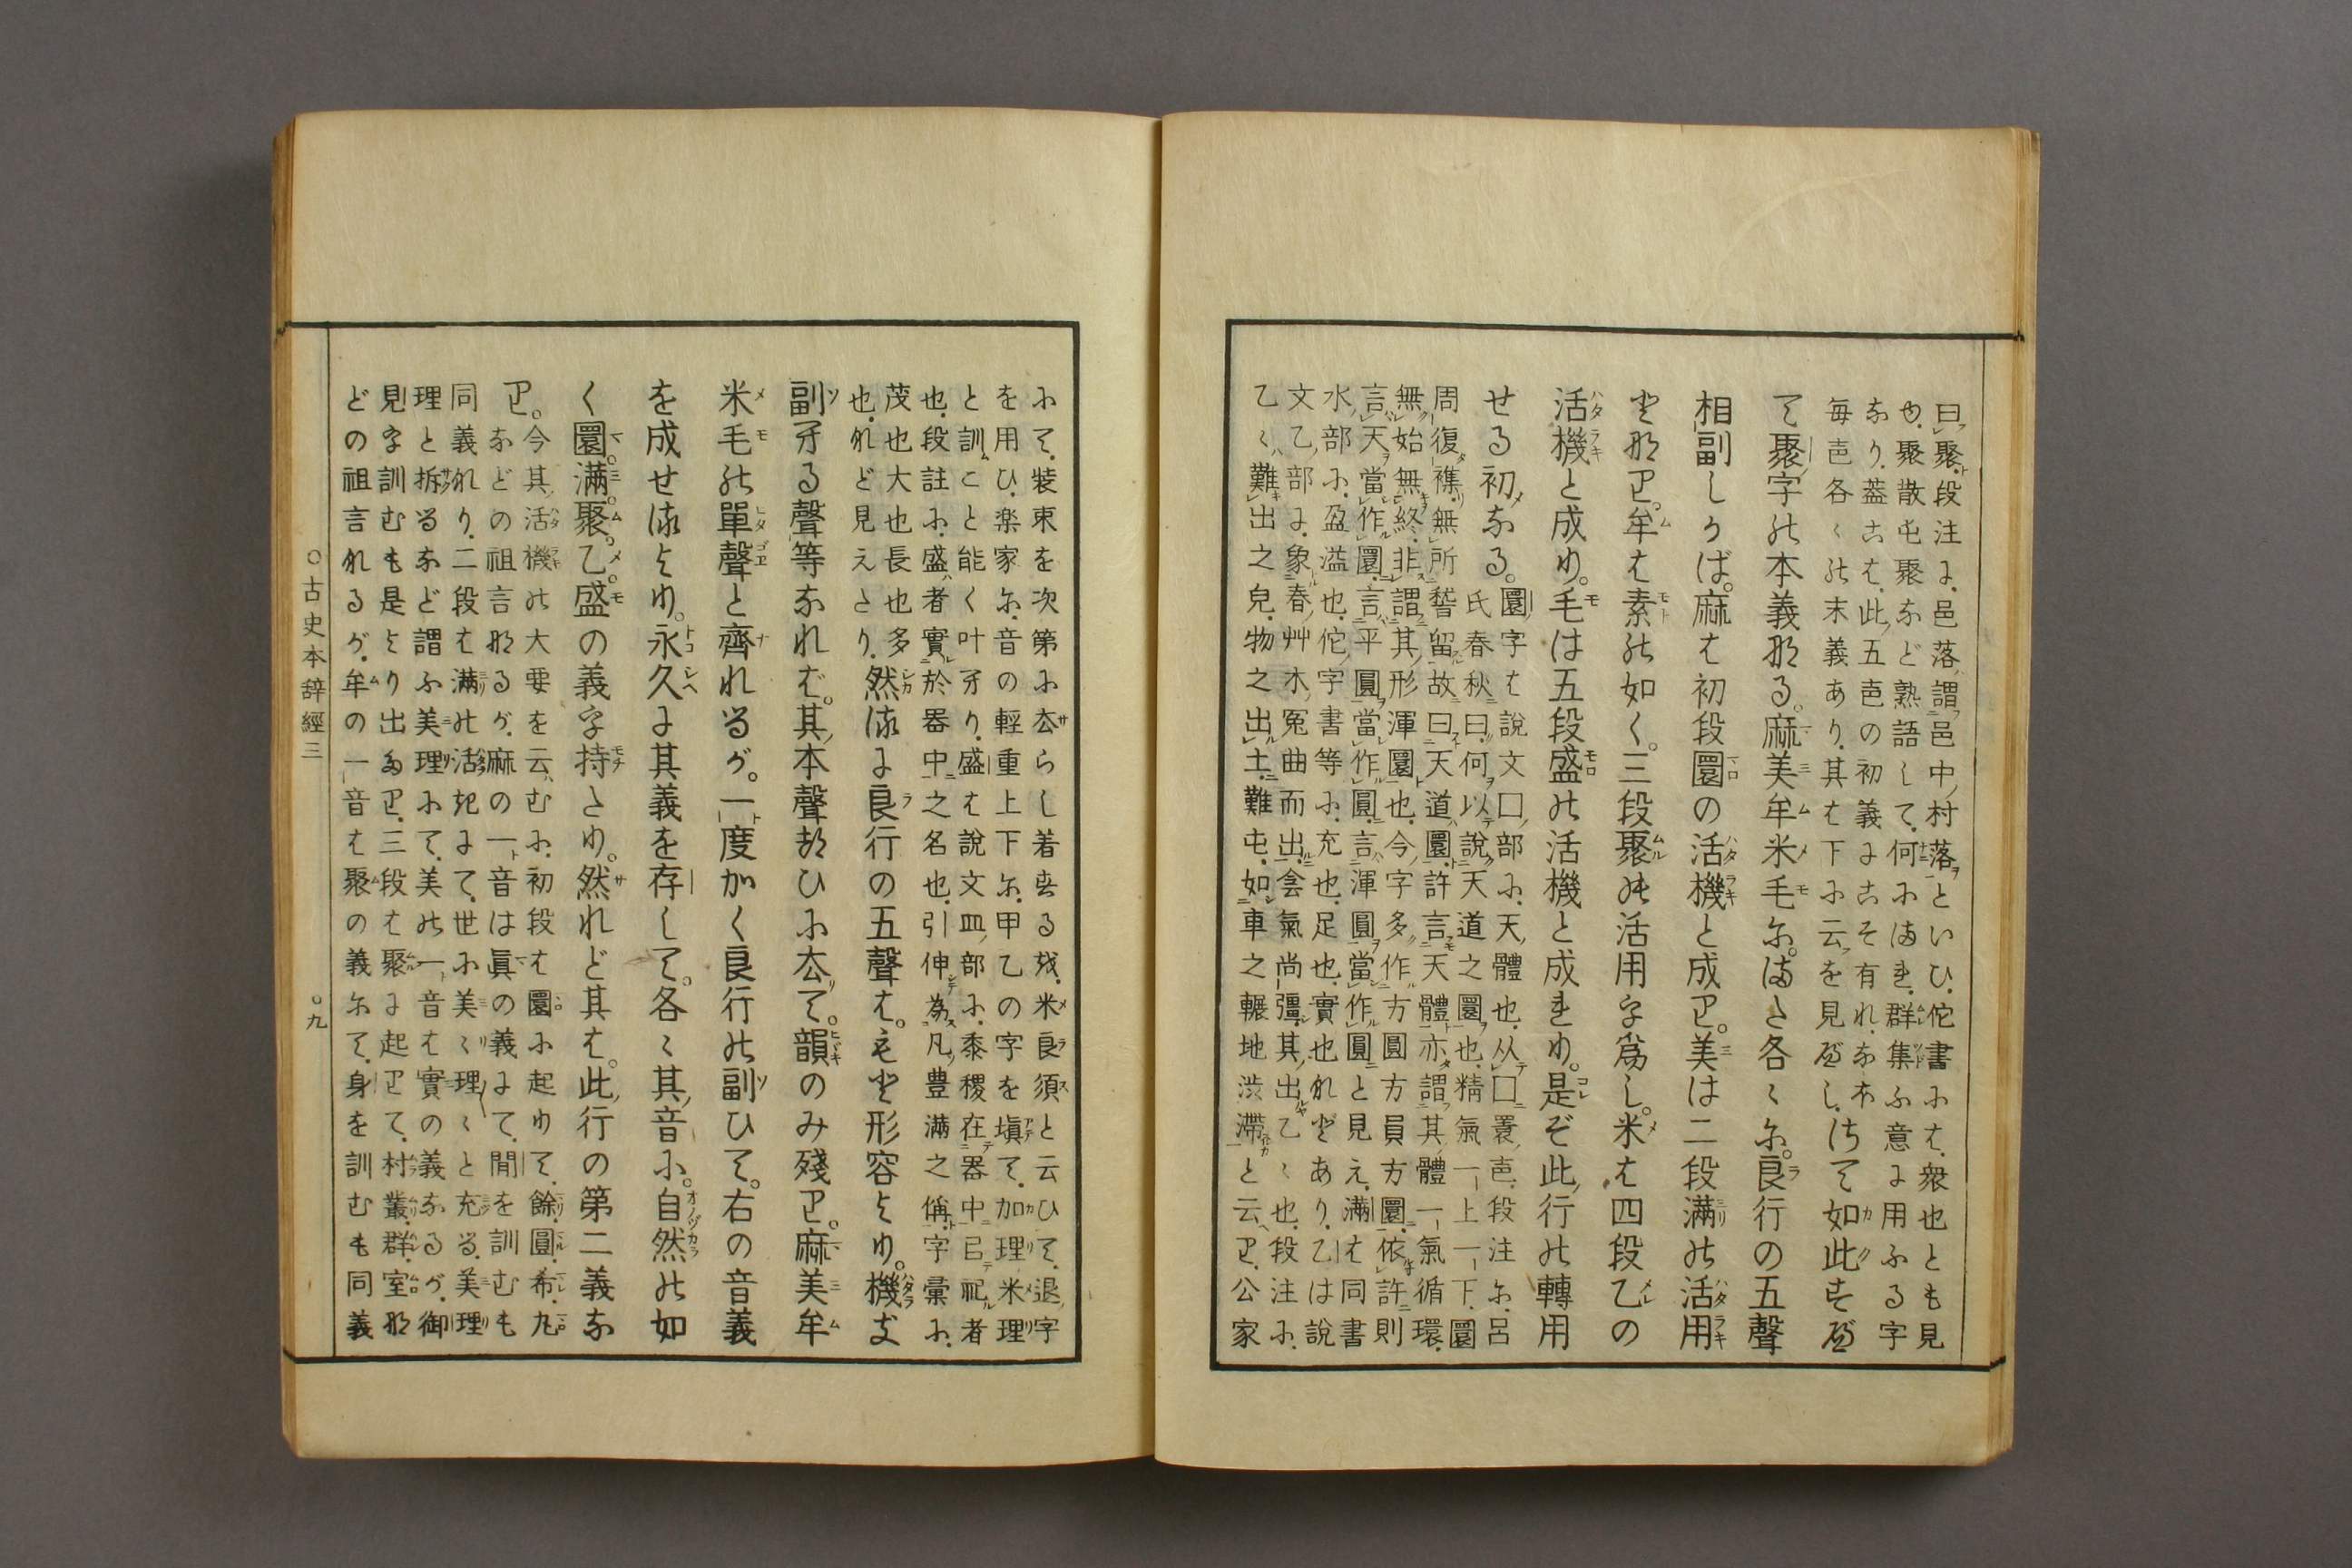 曰聚段注よ邑落謂邑中村落といひ佗書ふも衆也とも見
也聚散屯聚など熟語して何ふまれ群集ふ意よ用ふる字
なり蓋こは此五音の初義よこそ有れなほ
毎音各々の末義あり其は下ふ云を見べしさて如此すべ
て聚字の本義なる麻美牟米毛にまた各々に良行の五聲
相副しかば麻は初段圜の活機と成り美は二段滿の活用
となり牟は素の如く三段聚の活用字爲し米は四段乙の
活機と成り毛は五段盛の活機と成れり是ぞ此行の轉用
せる初なる
圜字は說文囗部ふ天體也从囗瞏音段注に呂
氏春秋曰何以說天道之圜也精氣一上一下圜
周復襍無所稽留故曰天道圜許言天體亦謂其體一氣循環
無始無終非謂其形渾圜也今字多作方圓方員方圜依許則
言天當作圜言平圓當作圓言渾圓當作圓と見え滿は同書
水部ふ盈溢也佗字書等ふ充也足也實也れどあり乙は說
文乙部よ象春艸木冤曲而出侌氣尚彊其出乙々也段注ふ
乙々難出之皃物之出土難屯如車之輾地渋滯と云へり公家
ふて裝束を次第ふ去らし着する或米良須と云ひて退字
を用ひ楽家に音の輕重上下に甲乙の字を塡て加理米理
と訓こと能く叶ヘり盛は說文皿部ふ黍稷在器中㠯祀者
也段註ふ盛者實於器中之名也引伸為凡豊滿之稱字彙ふ
茂也大也長也多
也れど見えたり然るよ良行の五聲は もと形容より機き
副する聲等なれば其本聲おひふ去て韻のみ殘り麻美牟
米毛の單聲と齊れるが一度かく良行の副ひて右の音義
を成せるより永久よ其義を存して各々其音ふ自然の如
く圜滿聚乙盛の義字持たり然れど其は此行の第二義な
り今其活機の大要を云むふ初段は圜ふ起りて餘圓希丸
などの祖言なるが麻の一音は眞の義よて閒を訓むも
同義れり二段は滿の活れよて世ふ美々理々と充る美理
理と拆るなど謂ふ美理ふて美の一音は實の義なるが御
見字訓むも是より出たり三段は聚よ起りて村叢群室な
どの祖言れるが牟の一音は聚の義にて身を訓むも同義
○古史本辭經三
○九